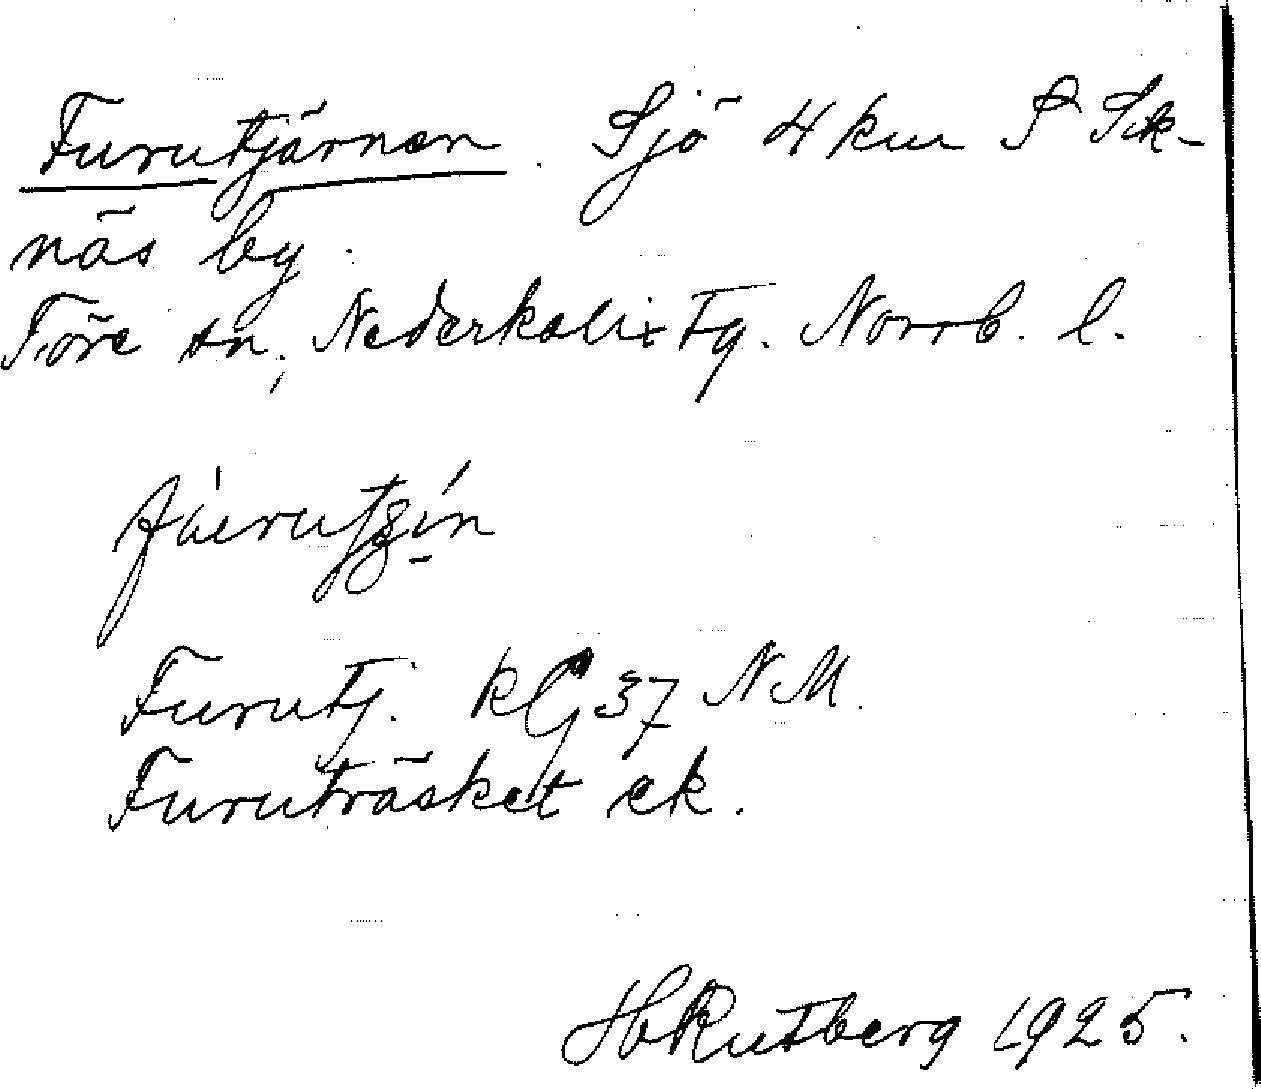 Furutjärnen. Sjö 4 km S Sik-
näs by.
Töre sn, Nederkalix tg. Norrb. l.
Furutj. kG 37 NM.
Furuträsket ek.
H Rutberg 1925.